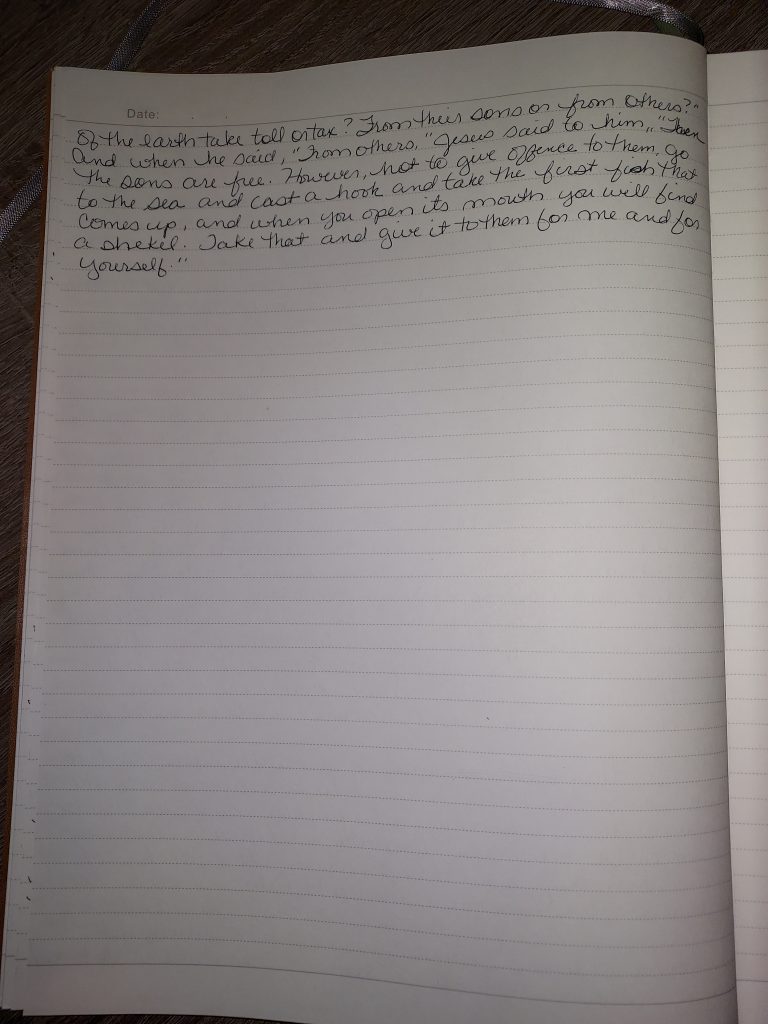 Date: . .
of the earth take toll or tax? From their sons or from others?"
And when he said, "From others," Jesus said to him, "Then
the sons are free. However, not to give offence to them, go
to the sea and cast a hook and take the first fish that
comes up, and when you open its mouth you will find
a shekel. Take that and give it to them for me and for
yourself."